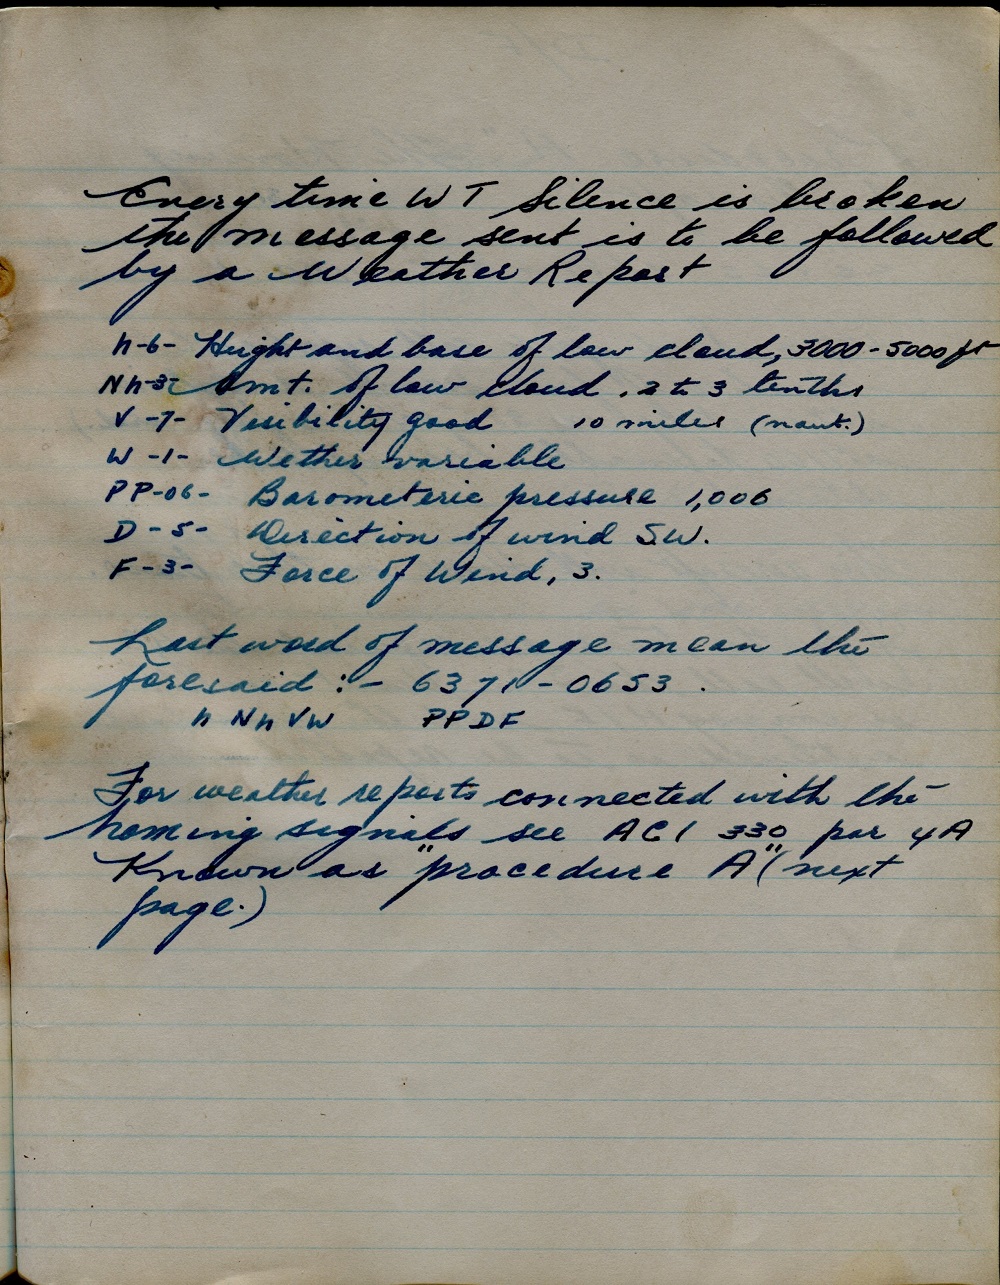 Every time WT Silence is broken
the message sent is to be followed
by a Weather Report
h-6- Hight and base of low cloud, 3000-5000 ft
Nh-3- Amt. of low cloud. 2 to 3 tenths
V-7- Visibility good 10 miles (naut.)
W-1- Wether variable
PP-06- Barometeric pressure 1,006
D-5- Direction of wind S.W.
F-3- Force of Wind, 3.
Last word of message mean the
foresaid:- 6371-0653.
h Nh V W PPDF
For weather reports connected with the
homing signals see ACI 330 par 4A
Known as "procedure A" (next
page.)